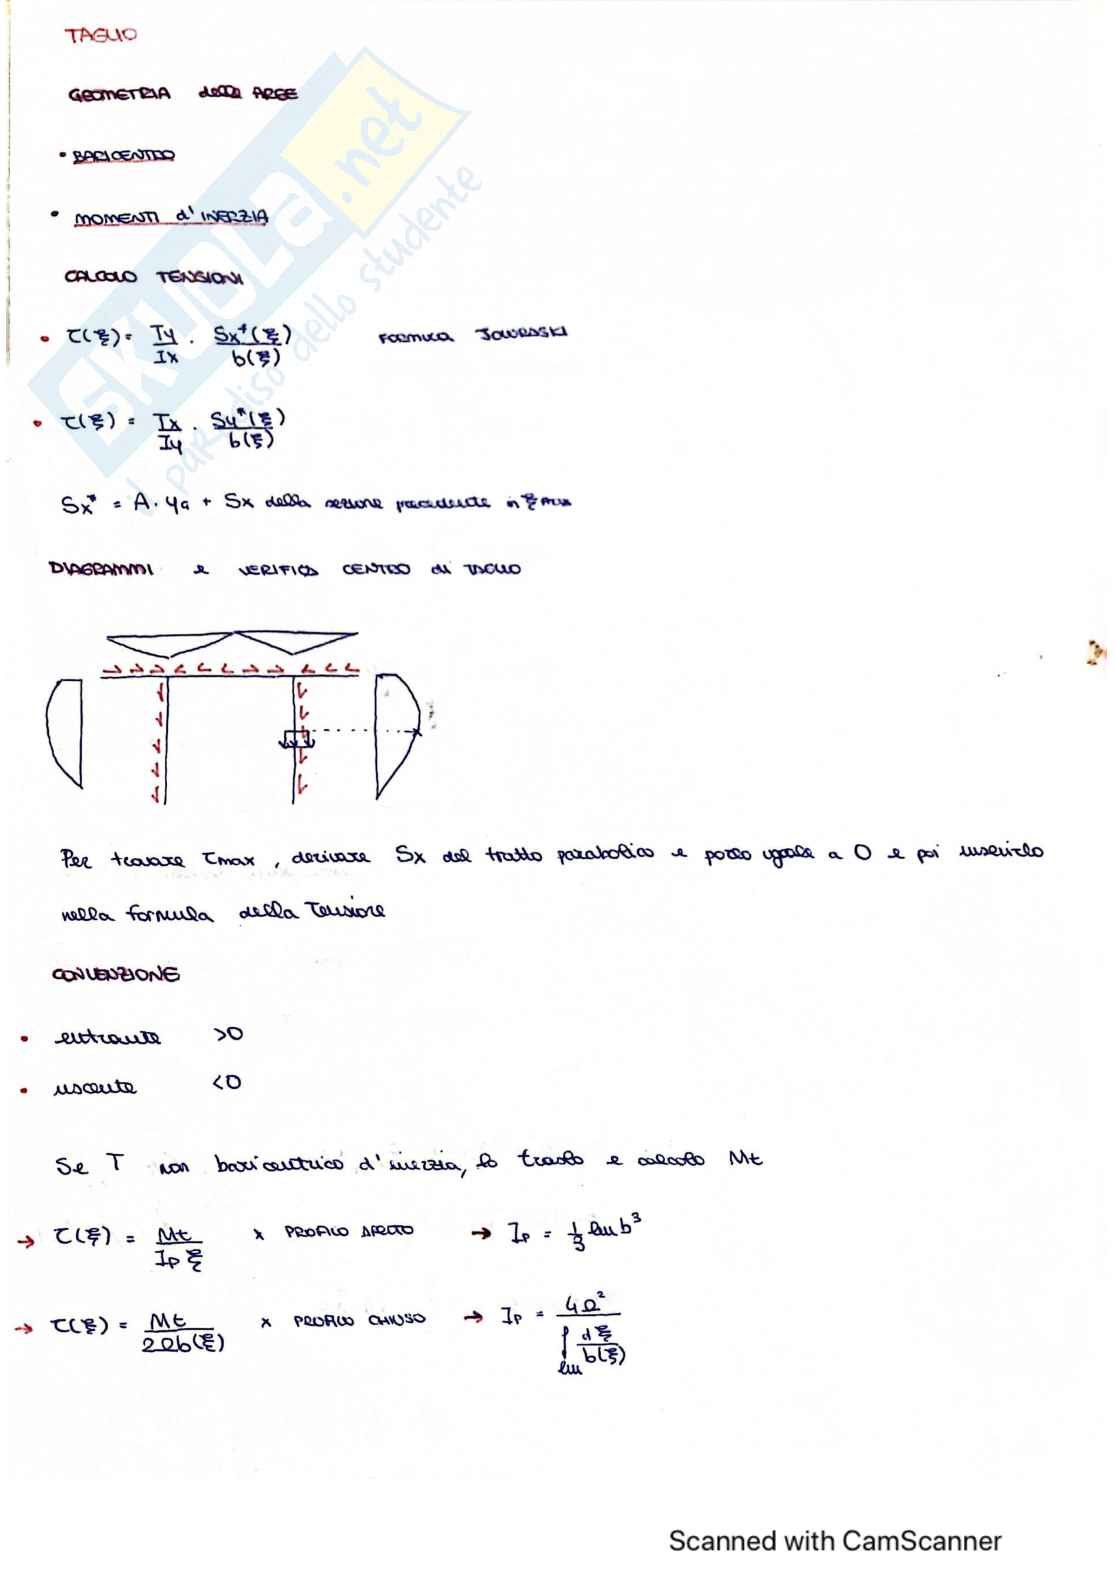 TAGLIO
GEOMETRIA delle AREE
• BARICENTRO
• MOMENTI d'INERZIA
CALCOLO TENSIONI
• τ(ξ) = Ty/Ix · Sx*(ξ)/b(ξ) FORMULA JOURASKI
• τ(ξ) = Tx/Iy · Sy*(ξ)/b(ξ)
Sx* = A · yG + Sx della sezione precedente in ξ max
DIAGRAMMI e VERIFICA CENTRO di TAGLIO
Per trovare τmax, derivare Sx del tratto parabolico e porlo uguale a 0 e poi inserirlo
nella formula della Tensione
CONVENZIONE
• entrante >0
• uscente <0
Se T non baricentrico d'inerzia, lo traslo e calcolo Mt
→ τ(ξ) = Mt/Ip ξ x PROFILO APERTO → Ip = 1/3 lm b³
→ τ(ξ) = Mt/2Ωb(ξ) x PROFILO CHIUSO → Ip = 4Ω²/∫lm dξ/b(ξ)
SKUOLA.net
il paradiso dello studente
Scanned with CamScanner